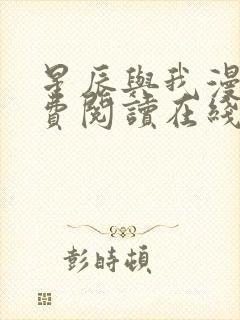 星辰與我漫
費閱讀在綫
彭時頓